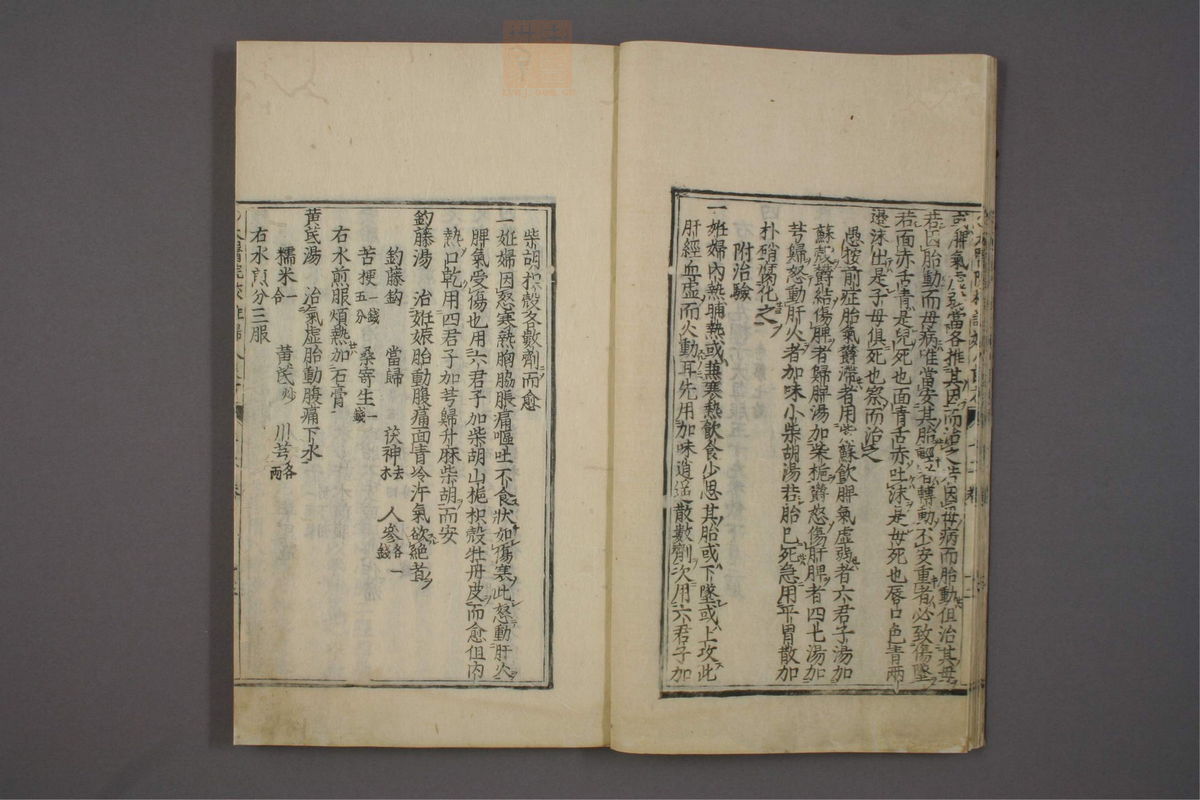 或脾氣虛弱當各推其因而治之若因母病而胎動但治其母
若因胎動而母病唯當安其胎輕者轉動不安重者必致傷墜
若面赤舌青是兒死也面青舌赤吐沫是母死也唇口色青兩
邊沫出是子母俱死也察而治之
愚按前症胎氣鬱滯者用紫蘇飲脾氣虛弱者六君子湯加
蘇殼鬱結傷脾者歸脾湯加柴梔鬱怒傷肝脾者四七湯加
芎歸怒動肝火者加味小柴胡湯若胎已死急用平胃散加
朴硝腐化之
附治驗
一姙婦內熱晡熱或兼寒熱飲食少思其胎或下墜或上攻此
肝經血虛而火動耳先用加味逍遙散數劑次用六君子加
柴胡枳殼各數劑而愈
一姙婦因怒寒熱胸脇脹痛嘔吐不食狀如傷寒此怒動肝火
脾氣受傷也用六君子加柴胡山梔枳殼牡丹皮而愈但內
熱口乾用四君子加芎歸升麻柴胡而安
釣藤湯 治姙娠胎動腹痛面青冷汗氣欲絕者
釣藤鈎 當歸 茯神去木 人參各一錢
苦梗一錢五分 桑寄生一錢
右水煎服煩熱加石膏
黄芪湯 治氣虛胎動腹痛下水
糯米一合 黄芪炒 川芎各一兩
右水煎分三服